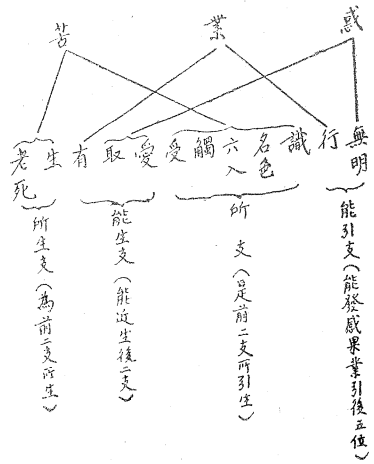 惑
業
苦
無明
行
識
名色
六入
觸
受
愛
取
有
生
老死
能引支(能發感果業引後五位)
所 支(是前二支所引生)
能生支(能近生後二支)
所生支(為前二支所生)